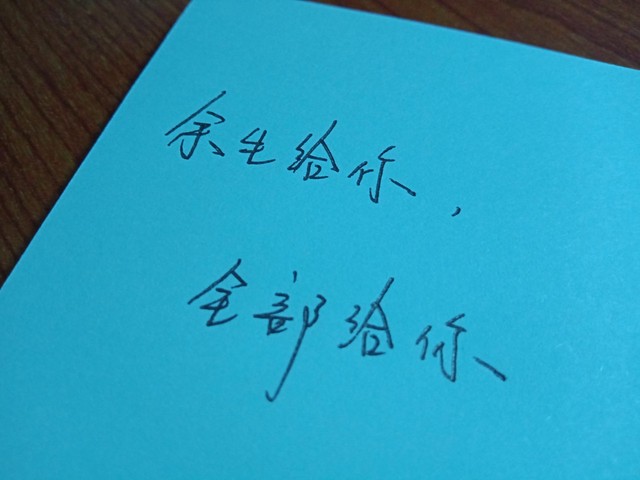 余生给你，
全部给你